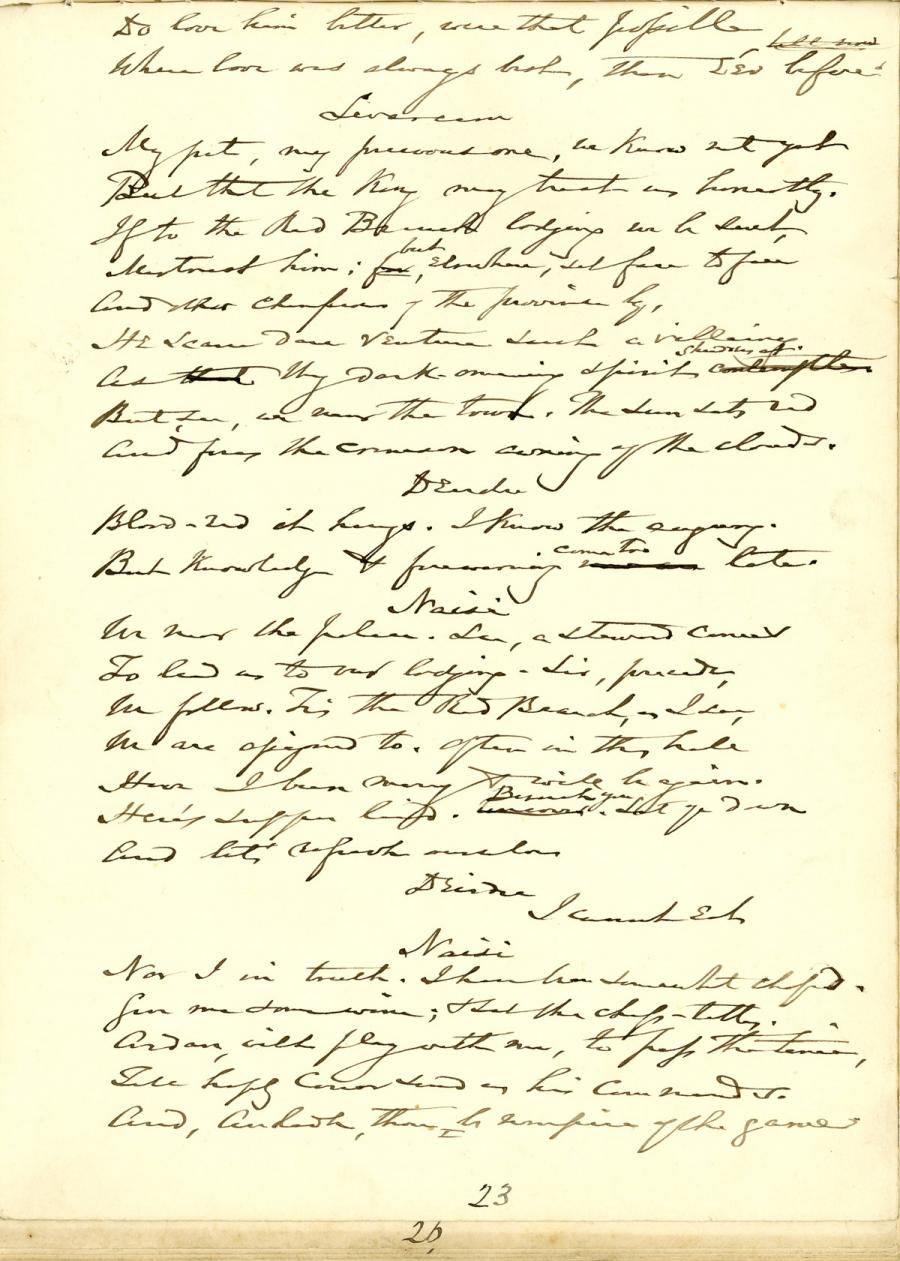 Do love him better, were that possible,
Where love was always best, than I do before. till now
Levarcam
My pet, my precious one, we know not yet
But that the King may treat us honestly.
If to the Red Branch lodging we be sent,
Mistrust him; for but, Elsewhere, set face to face
And other champions of the province by,
He scarce dare venture such a villainy
As that thy dark-omening spirit contemplates shadows off.
But see, we near the town. The sun sets red
And fires the crimson awning of the clouds.
Deirdre
Blood-red it hangs. I know the augury.
But Knowledge & forewarning come too late.
Naisi
We near the palace. See, a steward comes
To lead us to our lodging - Sir, precede,
We follow. 'Tis the Red Branch, as I see,
We are assigned to. Often in this hall
Have I been merry & will be again.
Here's supper laid. Beseech you. Sit ye down
And let's refresh ourselves
Deirdre
I cannot Eat
Naisi
Nor I in truth. I have been somewhat chafed.
Give me some wine; & set the chess-tables.
Ardan, wilt play with me, to pass the time,
Till haply Conor send us his commands.
And, Ainli, thou be umpire of the game
23
26